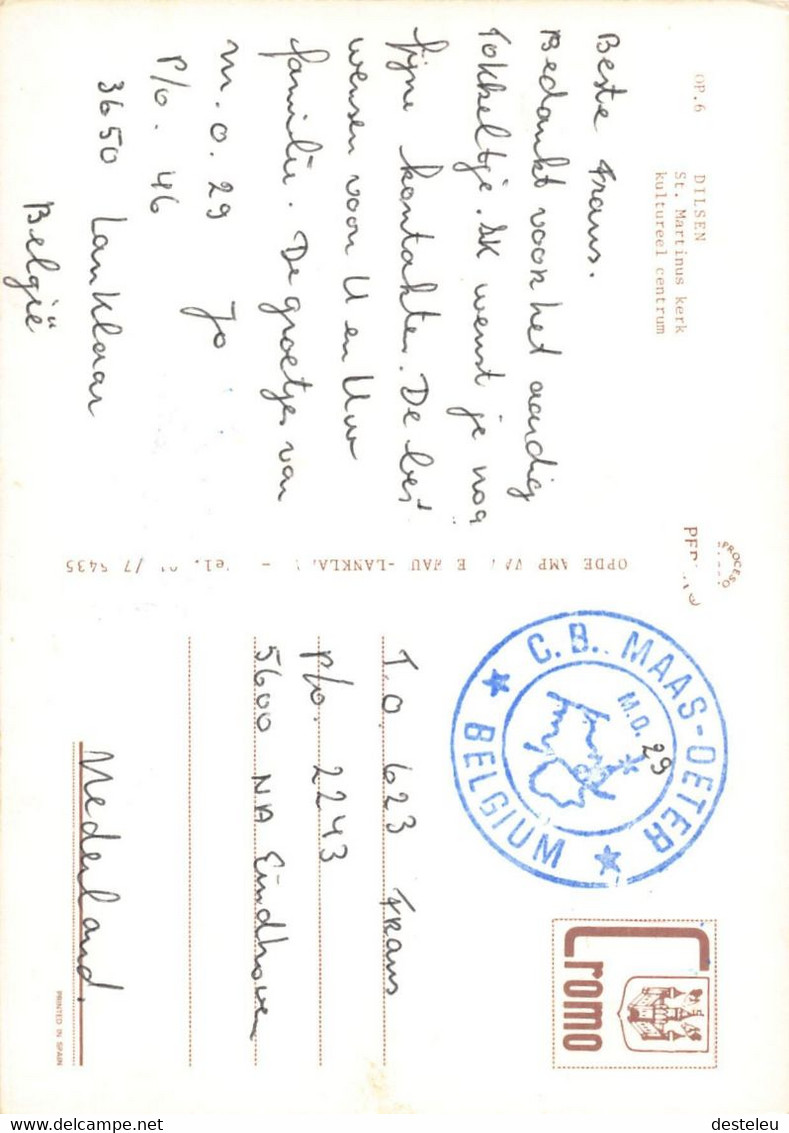 OP.6 DILSEN
St. Martinus kerk
kultureel centrum
Beste Frans.
Bedankt voor het aardig
tokkeltje. Ik wenst je nog
fijne kontakten. De best
wensen voor U en Uw
familie. De groetjes van
M.O. 29 Jo
P/o. 46
3650 Lanklaar
België
-LANKLA
5435
C.B. MAAS-OETER
BELGIUM
M.O. 29
Cromo
T.O. 623 Frans
P/o. 2243
5600 NA Eindhoven
Nederland.
PRINTED IN SPAIN
delcampe.net
desteleu